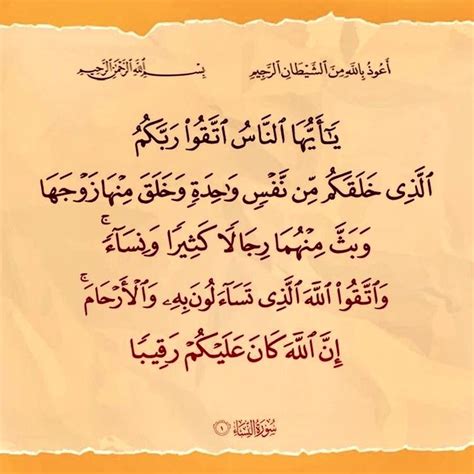 أَعُوذُ بِٱللَّهِ مِنَ ٱلشَّيْطَانِ ٱلرَّجِيمِ بِسْمِ ٱللَّهِ ٱلرَّحْمَٰنِ ٱلرَّحِيمِ
يَٰٓأَيُّهَا ٱلنَّاسُ ٱتَّقُوا۟ رَبَّكُمُ
ٱلَّذِى خَلَقَكُم مِّن نَّفْسٍ وَٰحِدَةٍ وَخَلَقَ مِنْهَا زَوْجَهَا
وَبَثَّ مِنْهُمَا رِجَالًا كَثِيرًا وَنِسَآءً ۚ
وَٱتَّقُوا۟ ٱللَّهَ ٱلَّذِى تَسَآءَلُونَ بِهِۦ وَٱلْأَرْحَامَ ۚ
إِنَّ ٱللَّهَ كَانَ عَلَيْكُمْ رَقِيبًا
سُورَةُ ٱلنِّسَاءِ ١